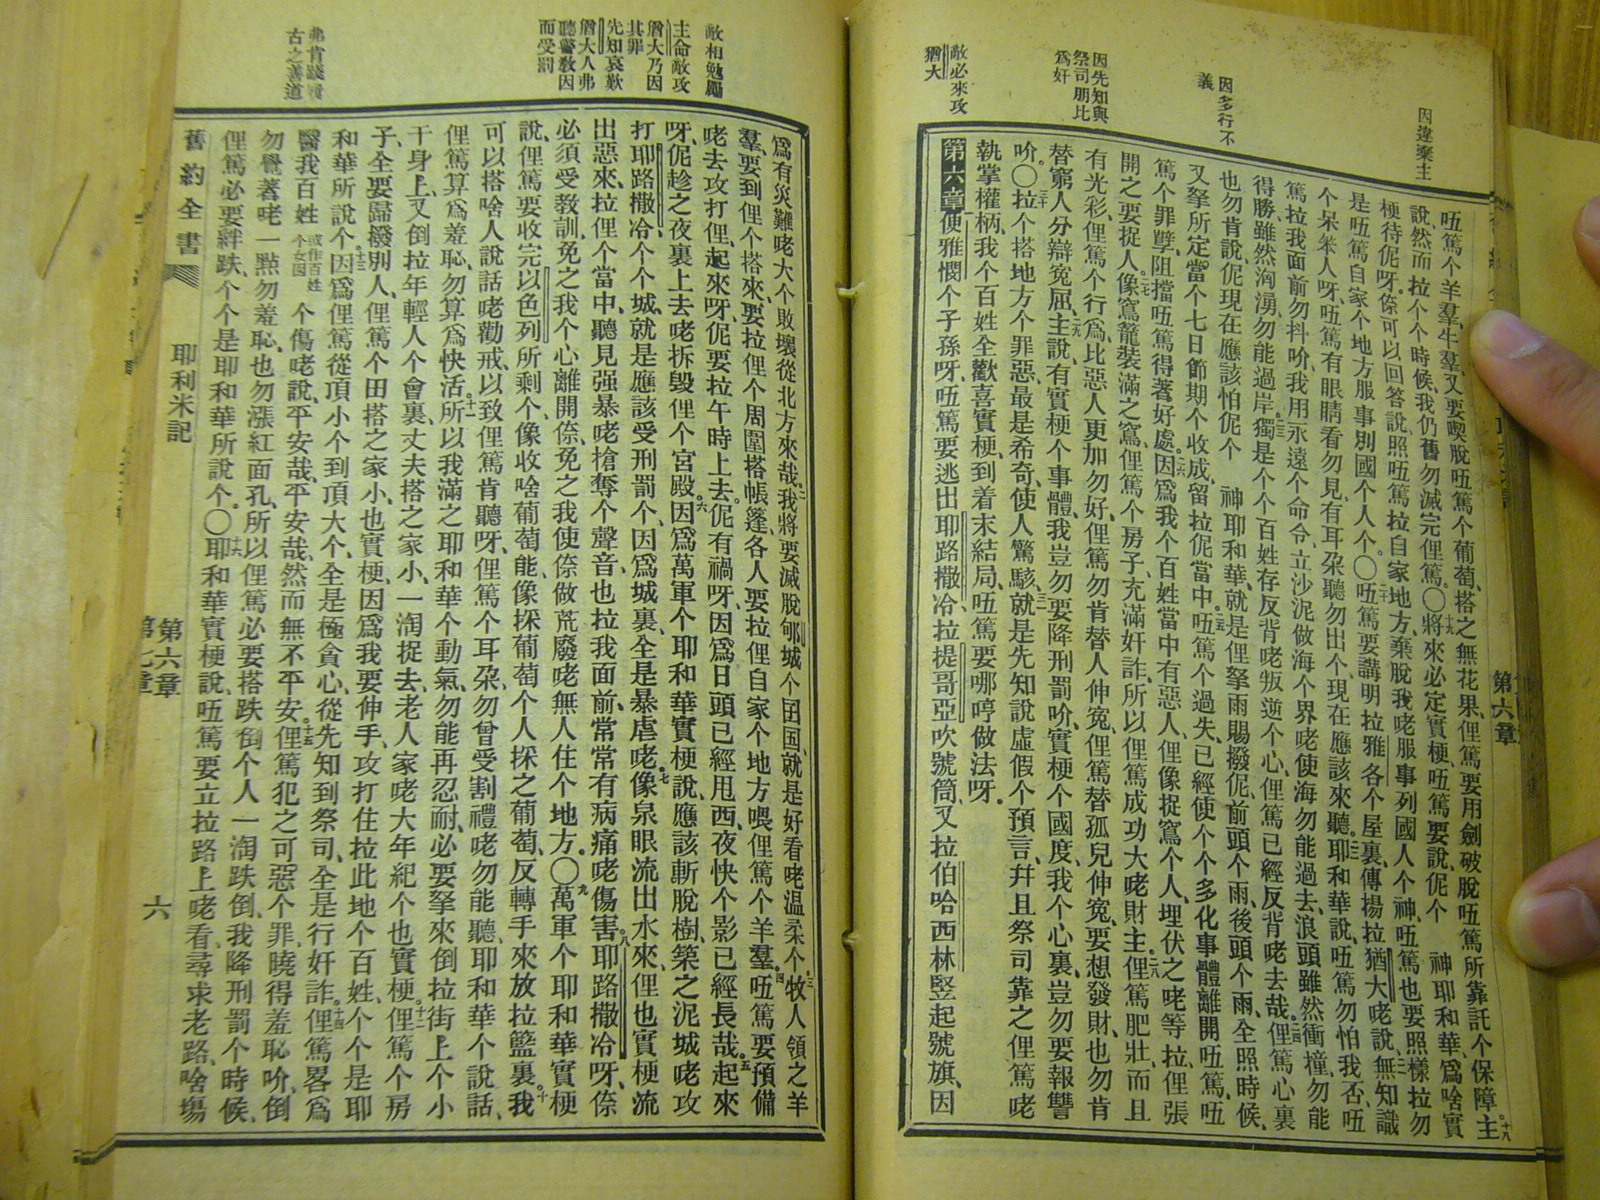 因違棄主
因多行不
義
因先知與
祭司朋比
爲奸
敵必來攻
猶大
第六章
吜篤个羊羣、牛羣、又要喫脫吜篤个葡萄、搭之無花果、俚篤要用劍破脫吜篤所靠託个保障、主
說、然而拉个个時候、我仍舊勿滅完俚篤、〇將來必定實梗、吜篤要說、伲个 神耶和華、爲啥實
梗待伲呀、倷可以回答說、照吜篤拉自家地方棄脫我咾服事列國人个神、吜篤也要照樣拉勿
是吜篤自家个地方服事別國个人个、〇吜篤要講明拉雅各个屋裏、傳楊拉猶大咾說、無知識
个呆笨人呀、吜篤有眼睛看勿見、有耳朶聽勿出个、現在應該來聽、耶和華說、吜篤勿怕我否、吜
篤拉我面前勿抖吤、我用永遠个命令、立沙泥做海个界咾使海勿能過去、浪頭雖然衝撞、勿能
得勝、雖然洶湧、勿能過岸、獨是个个百姓存反背咾叛逆个心、俚篤已經反背咾去哉、俚篤心裏
也勿肯說、伲現在應該怕伲个 神耶和華、就是俚拏雨賜撥伲、前頭个雨、後頭个雨、全照時候、
又拏所定當个七日節期个收成、留拉伲當中、吜篤个過失、已經使个个多化事體離開吜篤、吜
篤个罪孽、阻擋吜篤得著好處、因爲我个百姓當中有惡人、俚像捉鳥个人、埋伏之咾等拉、俚張
開之要捉人、像鳥籠裝滿之鳥、俚篤个房子充滿奸詐、所以俚篤成功大咾財主、俚篤肥壯、而且
有光彩、俚篤个行爲、比惡人更加勿好、俚篤勿肯替人伸寃、俚篤替孤兒伸寃、要想發財、也勿肯
替窮人分辯寃屈、主說、有實梗个事體、我豈勿要降刑罰吤、實梗个國度、我个心裏、豈勿要報讐
吤、〇拉个搭地方个罪惡、最是希奇、使人驚駭、就是先知說虛假个預言、幷且祭司靠之俚篤咾
執掌權柄、我个百姓全歡喜實梗、到着末結局、吜篤要哪哼做法呀、
便雅憫个子孫呀、吜篤要逃出耶路撒冷、拉提哥亞吹號筒、又拉伯哈西林竪起號旗、因
敵相勉勵
主命敵攻
猶大乃因
其罪
先知哀歎
猶大人弗
聽警教因
而受罰
弗肯踐履
古之善道
爲有災難咾大个敗壞從北方來哉、我將要滅脫郇城个囝囡、就是好看咾温柔个、牧人領之羊
羣、要到俚个搭來、要拉俚个周圍搭帳篷、各人要拉俚自家个地方喂俚篤个羊羣、吜篤要預備
咾去攻打俚、起來呀、伲要拉午時上去、伲有禍呀、因爲日頭已經甩西、夜快个影已經長哉、起來
呀、伲趁之夜裏上去咾拆毀俚个宮殿、因爲萬軍个耶和華實梗說、應該斬脫樹、築之泥城咾攻
打耶路撒冷、个个城、就是應該受刑罰个、因爲城裏、全是暴虐咾、像泉眼流出水來、俚也實梗流
出惡來、拉俚个當中、聽見强暴咾搶奪个聲音、也拉我面前、常常有病痛咾傷害、耶路撒冷呀、倷
必須受教訓、免之我个心離開倷、免之我使倷做荒廢咾無人住个地方、〇萬軍个耶和華實梗
說、俚篤要收完以色列所剩个、像收啥葡萄能、像採葡萄个人採之葡萄、反轉手來放拉籃裏、我
可以搭啥人說話咾勸戒、以致俚篤肯聽呀、俚篤个耳朶、勿曾受割禮咾勿能聽、耶和華个說話、
俚篤算爲羞恥、勿算爲快活、所以我滿之耶和華个動氣、勿能再忍耐、必要拏來倒拉街上个小
干身上、又倒拉年輕人个會裏、丈夫搭之家小、一淘捉去、老人家咾大年紀个也實梗、俚篤个房
子、全要歸撥別人、俚篤个田搭之家小、也實梗、因爲我要伸手、攻打住拉此地个百姓、个个是耶
和華所說个、因爲俚篤從頂小个到頂大个、全是極貪心、從先知到祭司、全是行奸詐、俚篤畧爲
醫我百姓或作百姓个女囡个傷咾說、平安哉、平安哉、然而無不平安、俚篤犯之可惡个罪、曉得羞恥吤、倒
勿覺著咾一點勿羞恥、也勿漲紅面孔、所以俚篤必要搭跌倒个人、一淘跌倒、我降刑罰个時候、
俚篤必要絆跌、个个是耶和華所說个、〇耶和華實梗說、吜篤要立拉路上咾看、尋求老路、啥場
舊約全書
耶利米記
第六章
六
第六章